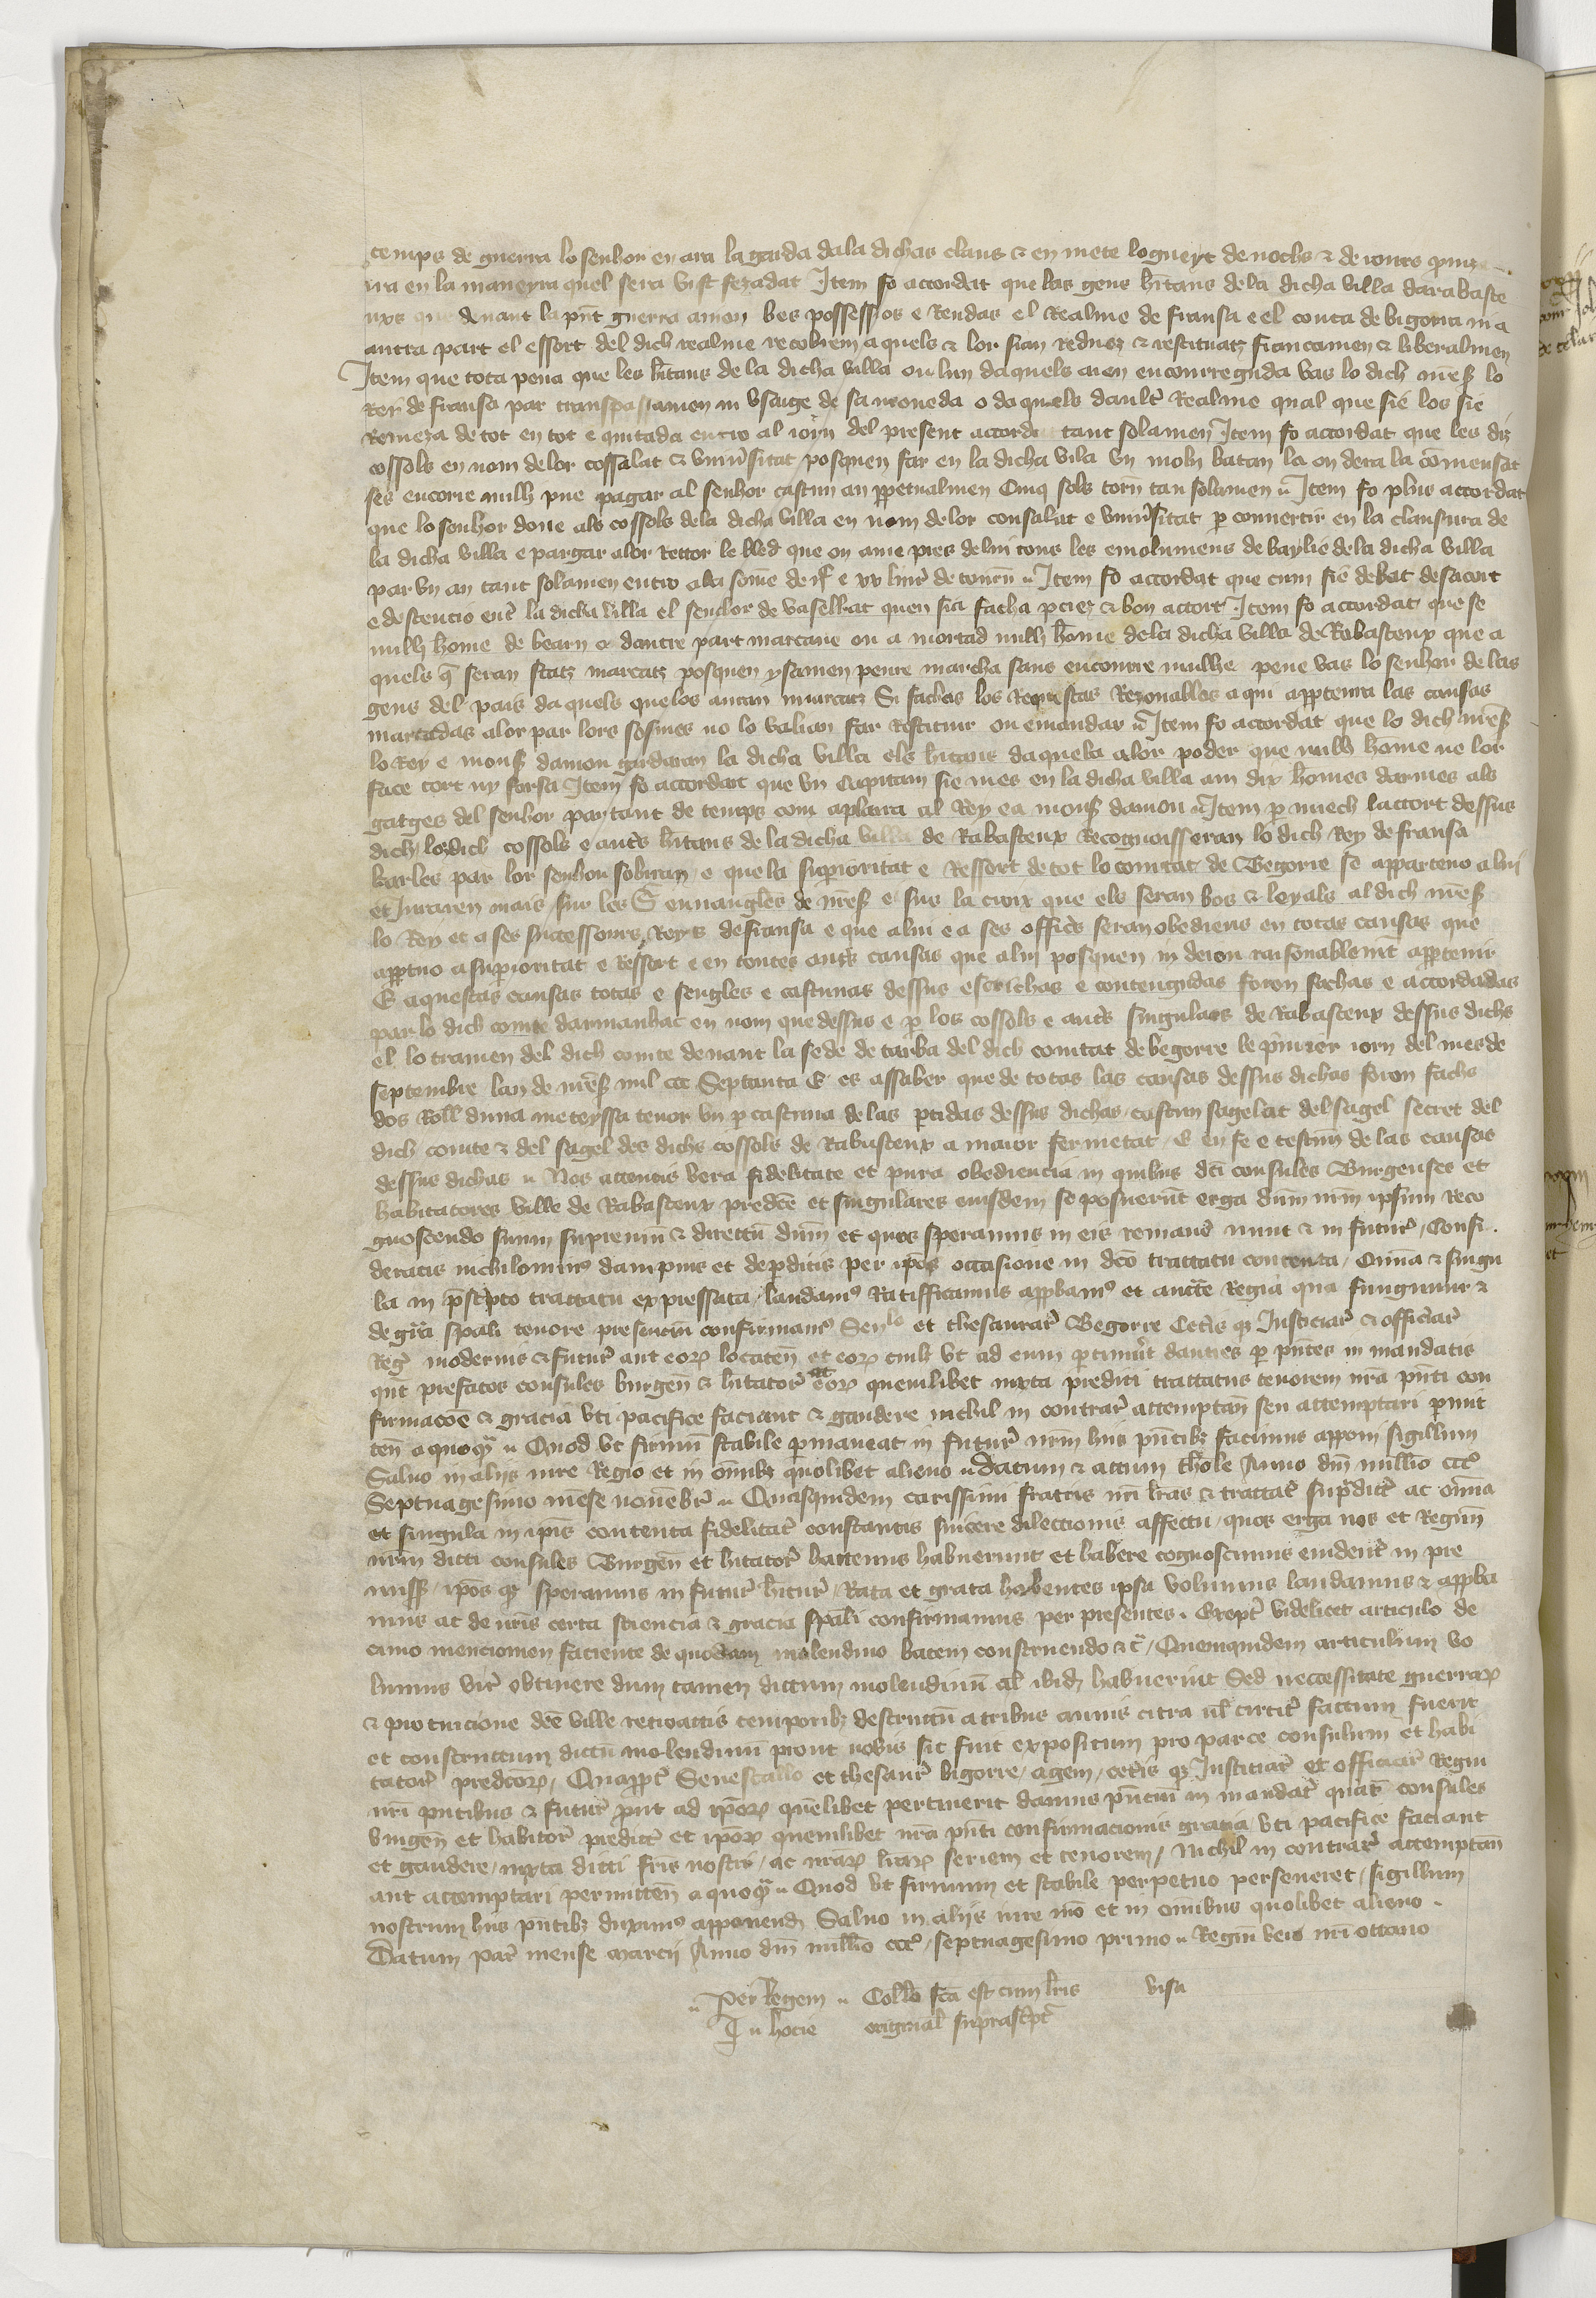 temps de guerra lo senhor en ara la garda dala dichas claus & en mete logueyt de nochs & de iorns
ura en la maneyra quel sera vist fezadat Item fo accordat que las gens hitans dela dicha villa darabaste
nxs que denant la pnt guerra auien bes possessios e Rendas el Realme de fransa e el conta de bigorra in a
autra part el essort del dich realme recobrem aquels & lor sian reduez & restituatz francamen & liberalmen
Item que tota pena que les hitans de la dicha villa ou lun daquels aien encorreguda vas lo dich mess lo
Rey de fransa par transpassamen in vsaige de sa moneda o daquels daultr Realme qual que sie los sie
Remeza de tot en tot e quitada entro al iorn del present accordi tant solamen Item fo accordat que les diz
cossols en nom de lor cossalat & vniusitat posquen far en la dicha vila vn moli batan la on dera la comensat
ses encorre nulh pne pagar al senhor cascun an ppetualmen Cinq sols torn tan solamen Item fo plus accordat
que lo senhor done als cossols dela dicha villa en nom delor consalat e vniusitat p conuertir en la clausura de
la dicha villa e pargar alor Rettor le bled que on ame pres de lui tous les emolumens de baylie dela dicha villa
par vn an tant solamen entro ala some de iic e xv liur de tourn Item fo accordat que cum sie debat desacort
e destencio entr la dicha villa el senhor de vasellat quen sia facha pciez & bon accort Item fo accordat que se
nulh home de bearn o dautre part marcaue ou a mortad nulh home dela dicha villa de Rabastenx que a
quels q seran statz marcatz posquen ysamen penre marcha sans encorre nulhe pene vas lo senhor de las
gens del pais daquels quelos auran marcatz Si fachas los Requestas Rezonables aqui apptenra las causas
martadas alor par lors sosmes no lo valian far Restituir ou emandar Item fo accordat que lo dich mess
lo Rey e mons daniou gardaran la dicha villa els hitans daquela alor poder que nulh home ne lor
face tort ny forsa Item fo accordat que vn Capitani sie mes en la dicha villa am dix homes darmes als
gatges del senhor par tant de temps com aplaira al Rey e a mons daniou Item p miech lactort dessus
dich lozdich cossols e autrs hitans de la dicha villa de Rabastenx Recognoisseran lo dich Rey de fransa
karles par lor senhor sobiran e que la supioritat e Ressort de tot lo comtat de Begorre se apparteno a lui
et Juraren mais sur les S euuangles de mess e sus la croix que els seran bos & leyals al dich mess
lo Rey et a ses successours Reys de fransa e que alui e a ses officrs seran obediens en totas causas que
apptno a supioritat e Ressort e en toutes autrs causas que alui posquen in deion raisonablemt apptenir
E aquestas causas totas e sengles e cascunas dessus escrichas e contengudas foron fachas e accordadas
par lo dich comte darmanhac en nom que dessus e p los cossols e autrs singulars de Rabastenx dessus dichs
el lo tramen del dich comte denant la sede de tarba del dich comtat de begorre le pmrer iorn del mes de
septembre lan de mess mil ccc Septanta E es assaber que de totas las causas dessus dichas foron fachs
dos Roll duna meteyssa tenor vn p cascuna de las ptidas dessus dichas cascun sagelat del sagel secret del
dich comte & del sagel des dichs cossols de Rabastenx a maior fermetat E en fe e testim de las causas
dessus dichas Nos attentis vera fidelitate et pura obediencia in quibus dti consules Burgenses et
habitatores ville de Rabastenx predce et singulares eiusdem se posuerunt erga dnm nrm ipsum reco
gnoscendo suum supremu & directu dnm et quos speramus in eis romane nunc & in futur Consi
deratis nichilominus dampnis et depditis per ipos occasione in dco tractatu contenta Omnia & singu
la in pscripto tractatu expressata laudamus Ratifficamus appbamus et aucte Regia qua fungimur &
de gra spali tenore presencium confirmamus Senlo et thesaurar Begorre Ceteris q Justiciar & officiar
Reg modernis & futur aut eorum locaten et eorum cuilt vt ad eum ptinuit damus p pntes in mandatis
qnt prefatos consules burgen & hitator eorum quemlibet iuxta predicti tractatus tenorem nra pnti con
firmacoe & gracia vti pacifice faciant & gaudere nichil in contrar attemptan seu attemptari pmit
ten aquoq Quod vt firmu stabile pmaneat in futur nrm hiis pntibz facimus apponi sigillum
Saluo in aliis iure Regio et in omibz quolibet alieno datum & actum thole Anno dni millio ccco
Septuagesimo mese nouebr Quasquidem carissimi fratris nri lras & tractat supdict ac omia
et singula in ipis contenta fidelitat constantis sincere dilectionis affectu quos erga nos et Regim
nrm dicti consules Burgen et hitator hactenus habuerunt et habere cognoscimus euident in pre
miss ipos q speramus in futur hitur Rata et grata habentes ipsa volumus laudamus & appba
mus ac de nris certa sciencia & gracia spali confirmamus per presentes Except videlicet articulo de
cimo mencionem faciente de quodam molendino baten construendo &c Quemquidem articulum vo
lumus vir obtinere dum tamen dictum molendinu al ibid habuerint Sed neccessitate guerrarum
& pro tuicione dce ville retroactis temporibz destructu a tribus annis citra ul circit factum fuerit
et constructum dictu molendinu prout nobis sic fuit expositum pro parte consulum et habi
tator predcorum Quappt Senescallo et thesaur bigorre agen ceteris q Justiciar et officiar Regni
nri pntibus & futur put ad iporum quelibet pertinerit damus pncium in mandat quat consules
burgen et habitor predict et iporum quemlibet nra pnti confirmacionis gracia vti pacifice faciant
et gaudere iuxta dicti fris nostri ac nrarum lrarum seriem et tenorem Nichil in contrar attemptan
aut attemptari permitten a quoq Quod vt firmum et stabile perpetuo perseueret sigillum
nostrum hiis pntibz duximus apponend Saluo in aliis iure nro et in omibus quolibet alieno
Datum Par mense marcii Anno dni millio ccco septuagesimo primo Regni vero nri octauo
Per Regem Collo fca est cum lris visa
J n hocie original suprascpt